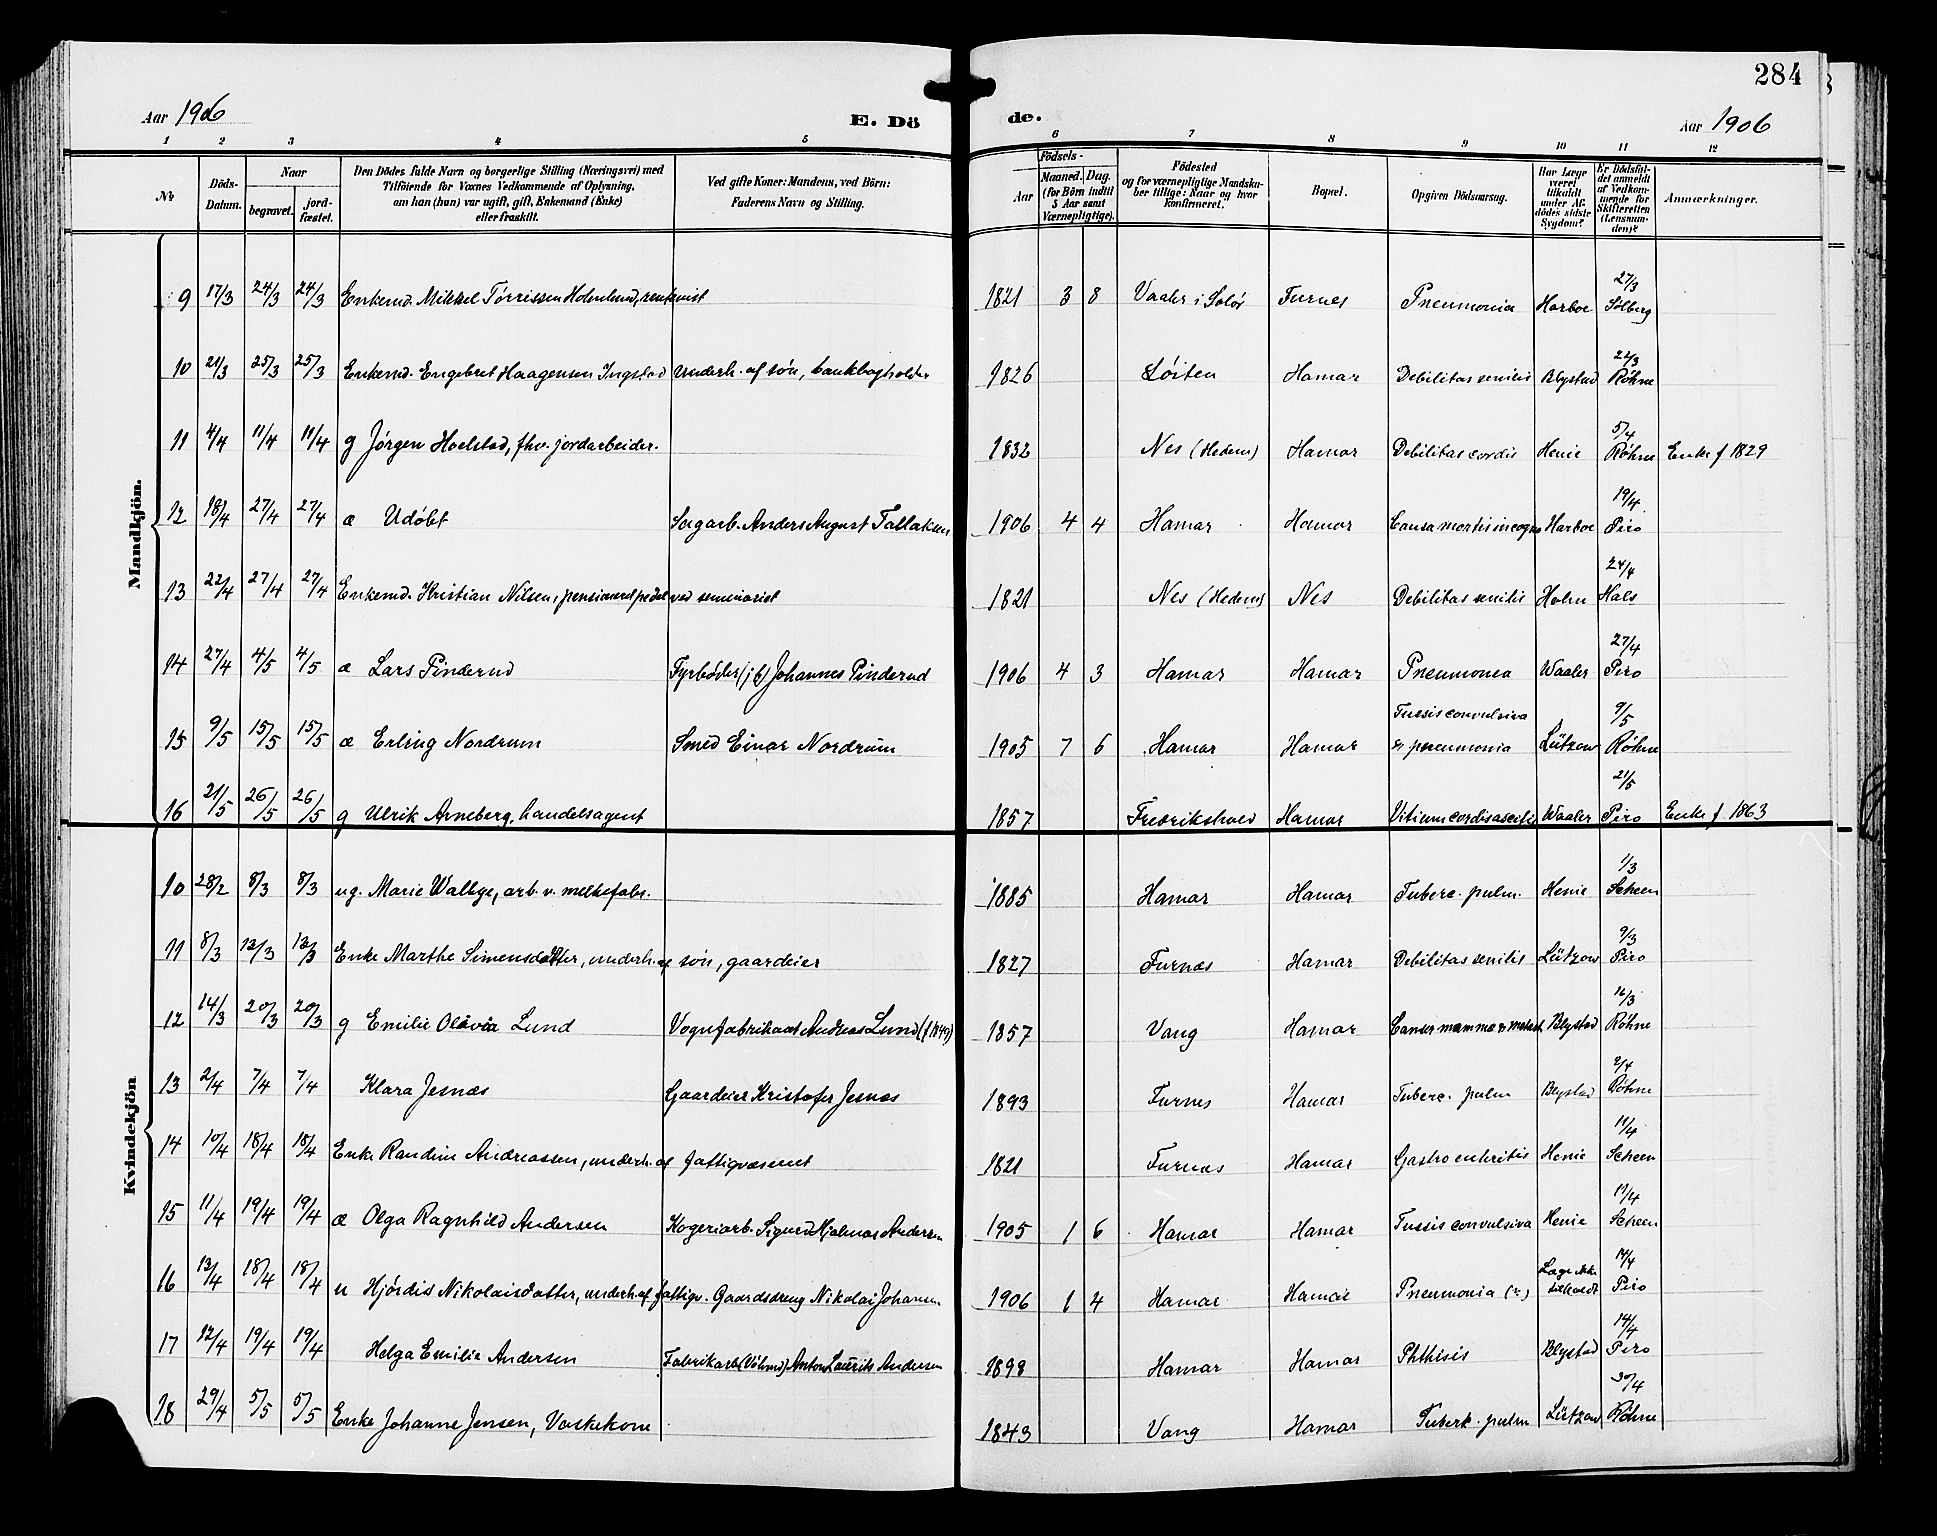 284
Aar 1906 E. Dö de. Aar 1906
1 2 3 4 5 6 7 8 9 10 11 12
№ Döds-Datum. Naar begravet. jord-fæstet. Den Dödes fulde Navn og borgerlige Stilling (Næringsvei) med Tilföiende for Voxnes Vedkommende af Oplysning, om han (hun) var ugift, gift, Enkemand (Enke) eller fraskilt. Ved gifte Koner: Mandens, ved Börn: Faderens Navn og Stilling. Födsels- Aar Maaned. Dag. (for Börn indtil 5 Aar samt Værnepligtige). Födested og for værnepligtige Mandskaber tillige: Naar og hvor konfirmeret. Bopæl. Opgiven Dödsaarsag. Har Læge været tilkaldt under Afdödes sidste Sygdom? Er Dödsfaldet anmeldt af Vedkommende for Skifteretten (Lensmanden)? Anmærkninger.
Mandkjön.
9 17/3 24/3 24/3 Enkemd. Mikkel Tørrissen Holmlund, rentenist 1821 3 8 Vaaler i Solør Furnes Pneumonia Harboe 27/3 Solberg
10 21/3 25/3 25/3 Enkemd. Engebret Haagensen Ingstad underh. af søn, bankbogholder 1826 Løiten Hamar Debilitas senilis Blystad 22/3 Røhne
11 4/4 11/4 11/4 g Jørgen Hoelstad, fhv. jordarbeider. 1832 Nes (Hedem) Hamar Debilitas cordis Henie 5/4 Røhne Enke f 1829
12 18/4 27/4 27/4 æ Udøbt Sagarb. Anders August Tallaksen 1906 4 4 Hamar Hamar Causa mortis incogn Harboe 19/4 Piro
13 22/4 27/4 27/4 Enkemd. Kristian Nilsen, pensioneret pedel ved seminariet 1821 Nes (Hedem) Nes Debilitas senilis Holm 24/4 Hals
14 27/4 4/5 4/5 æ Lars Pinderud Fyrbøder (jb) Johannes Pinderud 1906 4 3 Hamar Hamar Pneumonia Waaler 27/4 Piro
15 9/5 15/5 15/5 æ Erling Nordrum Smed Einar Nordrum 1905 7 6 Hamar Hamar Tussis convulsiva & pneumonia Lützow 9/5 Røhne
16 21/5 26/5 26/5 g Ulrik Arneberg, handelsagent 1857 Fredrikshald Hamar Vitium cordis ascites Waaler 21/5 Piro Enke f 1863
Kvindekjön
10 28/2 8/3 8/3 ug. Marie Walbye, arb. v. melkefabr. 1885 Hamar Hamar Tuberc. pulm. Henie 1/3 Scheen
11 8/3 13/3 13/3 Enke Marthe Simensdatter, underh. af søn, gaardeier 1827 Furnes Hamar Debilitas senilis Lützow 9/3 Piro
12 14/3 20/3 20/3 g Emilie Olavia Lund Vognfabrikant Andreas Lund (f 1849) 1857 Vang Hamar Cancer mammæ & metast. Blystad 16/3 Røhne
13 2/4 7/4 7/4 Klara Jesnæs Gaardeier Kristofer Jesnæs 1893 Furnes Hamar Tuberc. pulm Blystad 2/4 Røhne
14 10/4 18/4 18/4 Enke Randine Andreassen, underh. af fattigvæsenet 1821 Furnes Hamar Gastroenteritis Henie 11/4 Scheen
15 11/4 19/4 19/4 æ Olga Ragnhild Andersen Kogeriarb. Sigurd Hjalmar Andersen 1905 1 6 Hamar Hamar Tussis convulsiva Henie 17/4 Scheen
16 13/4 18/4 18/4 u Hjørdis Nikolaisdatter, underh. af fattigv. Gaardsdreng Nikolai Johansen 1906 1 4 Hamar Hamar Pneumonia (?) Læge ikke tilkaldt 14/4 Piro
17 12/4 19/4 19/4 Helga Emilie Andersen Fabrikarb. Anton Laurits Andersen 1898 Hamar Hamar Phthisis Blystad 14/4 Piro
18 29/4 5/5 5/5 Enke Johanne Jensen, Vaskekone 1843 Vang Hamar Tuberk. pulm Lützow 30/4 Røhne